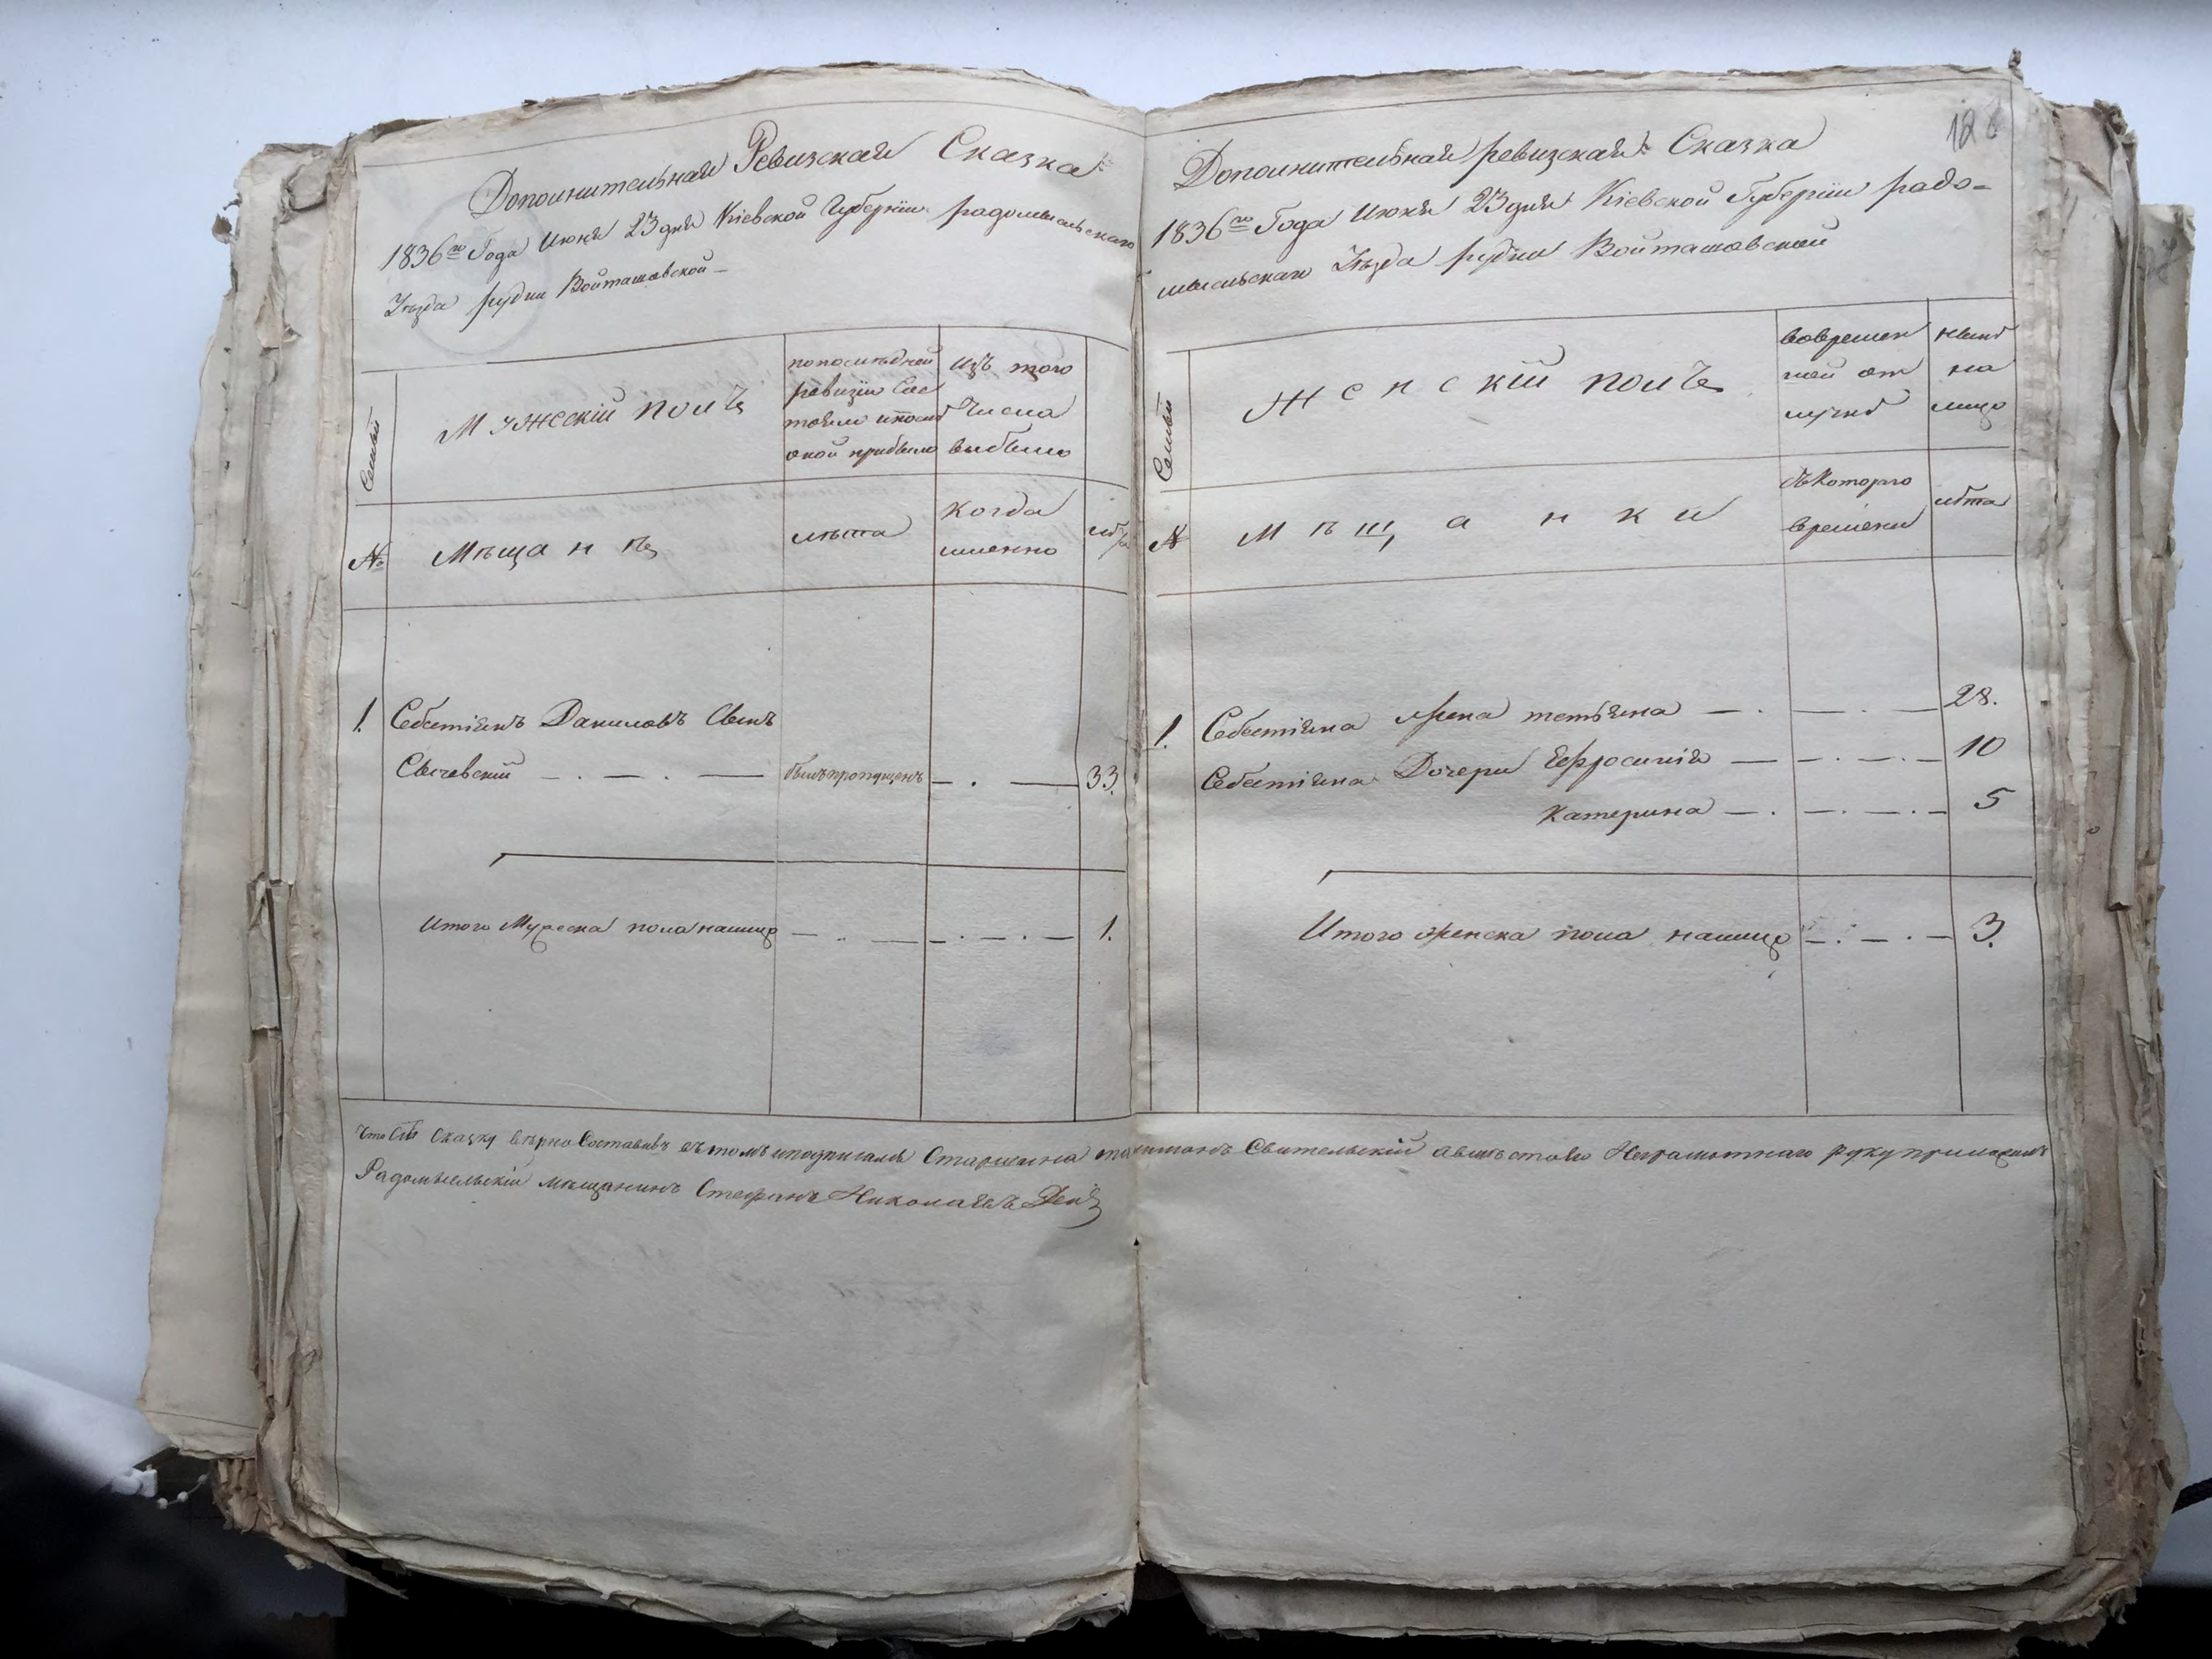 Дополнительная Ревизская Сказка
1836го Года Июня 23 дня Кіевской Губерніи радомысльскаго
Уѣзда рудни Войташовской
Семьи
Мужескій полъ
попослѣдней
ревизіи Сос
тояло ипосли
оной прибыло
изъ того
Числа
выбыло
№
Мѣщанѣ
лѣта
когда
именно
лѣта
1. Себестіянъ Даниловъ Сынъ
Свычевскій былъ пропущенъ 33.
Итого Мужеска пола налицо 1.
128
Дополнительная ревизская Сказка
1836го Года Июня 23 дня Кіевской Губерніи радо-
мысльскаго Уѣзда рудни Войташовской
Семьи
Женскій полъ
вовремен
ной от
лучкѣ
нынѣ
на
лицо
№
Мѣщанки
съ Которого
времени
лѣта
1. Себестіяна Жена тетьяна 28.
Себестіяна Дочери Ефросинія 10
Катерина 5
Итого женска пола налицо 3.
Что Сію Сказку вѣрно Составивъ въ томъ иподписался Старшина Свительскій авмѣстово Неграмотнаго руку приложилъ
Радомысльскій мещанинъ Стефанъ Николаевъ